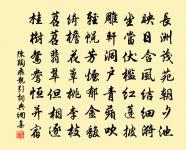 長洲茂苑朝夕池
映日含風結細漪
坐當伏檻紅蓮披
雕軒洞戶青蘋吹
輕幌芳煙鬱金馥
綺檐花簟桃李枝
苕苕翡翠但相逐
桂樹鴛鴦恆并宿
陳陶飛龍引詞典網集